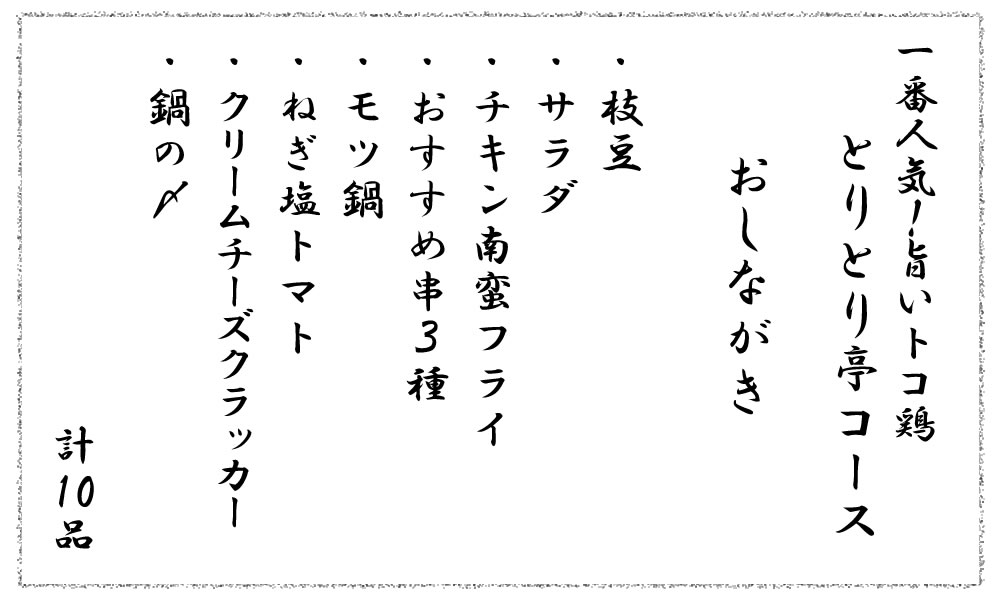 一番人気！旨いトコ鶏
とりとり亭コース
おしながき
・枝豆
・サラダ
・チキン南蛮フライ
・おすすめ串３種
・モツ鍋
・ねぎ塩トマト
・クリームチーズクラッカー
・鍋の〆
計10品